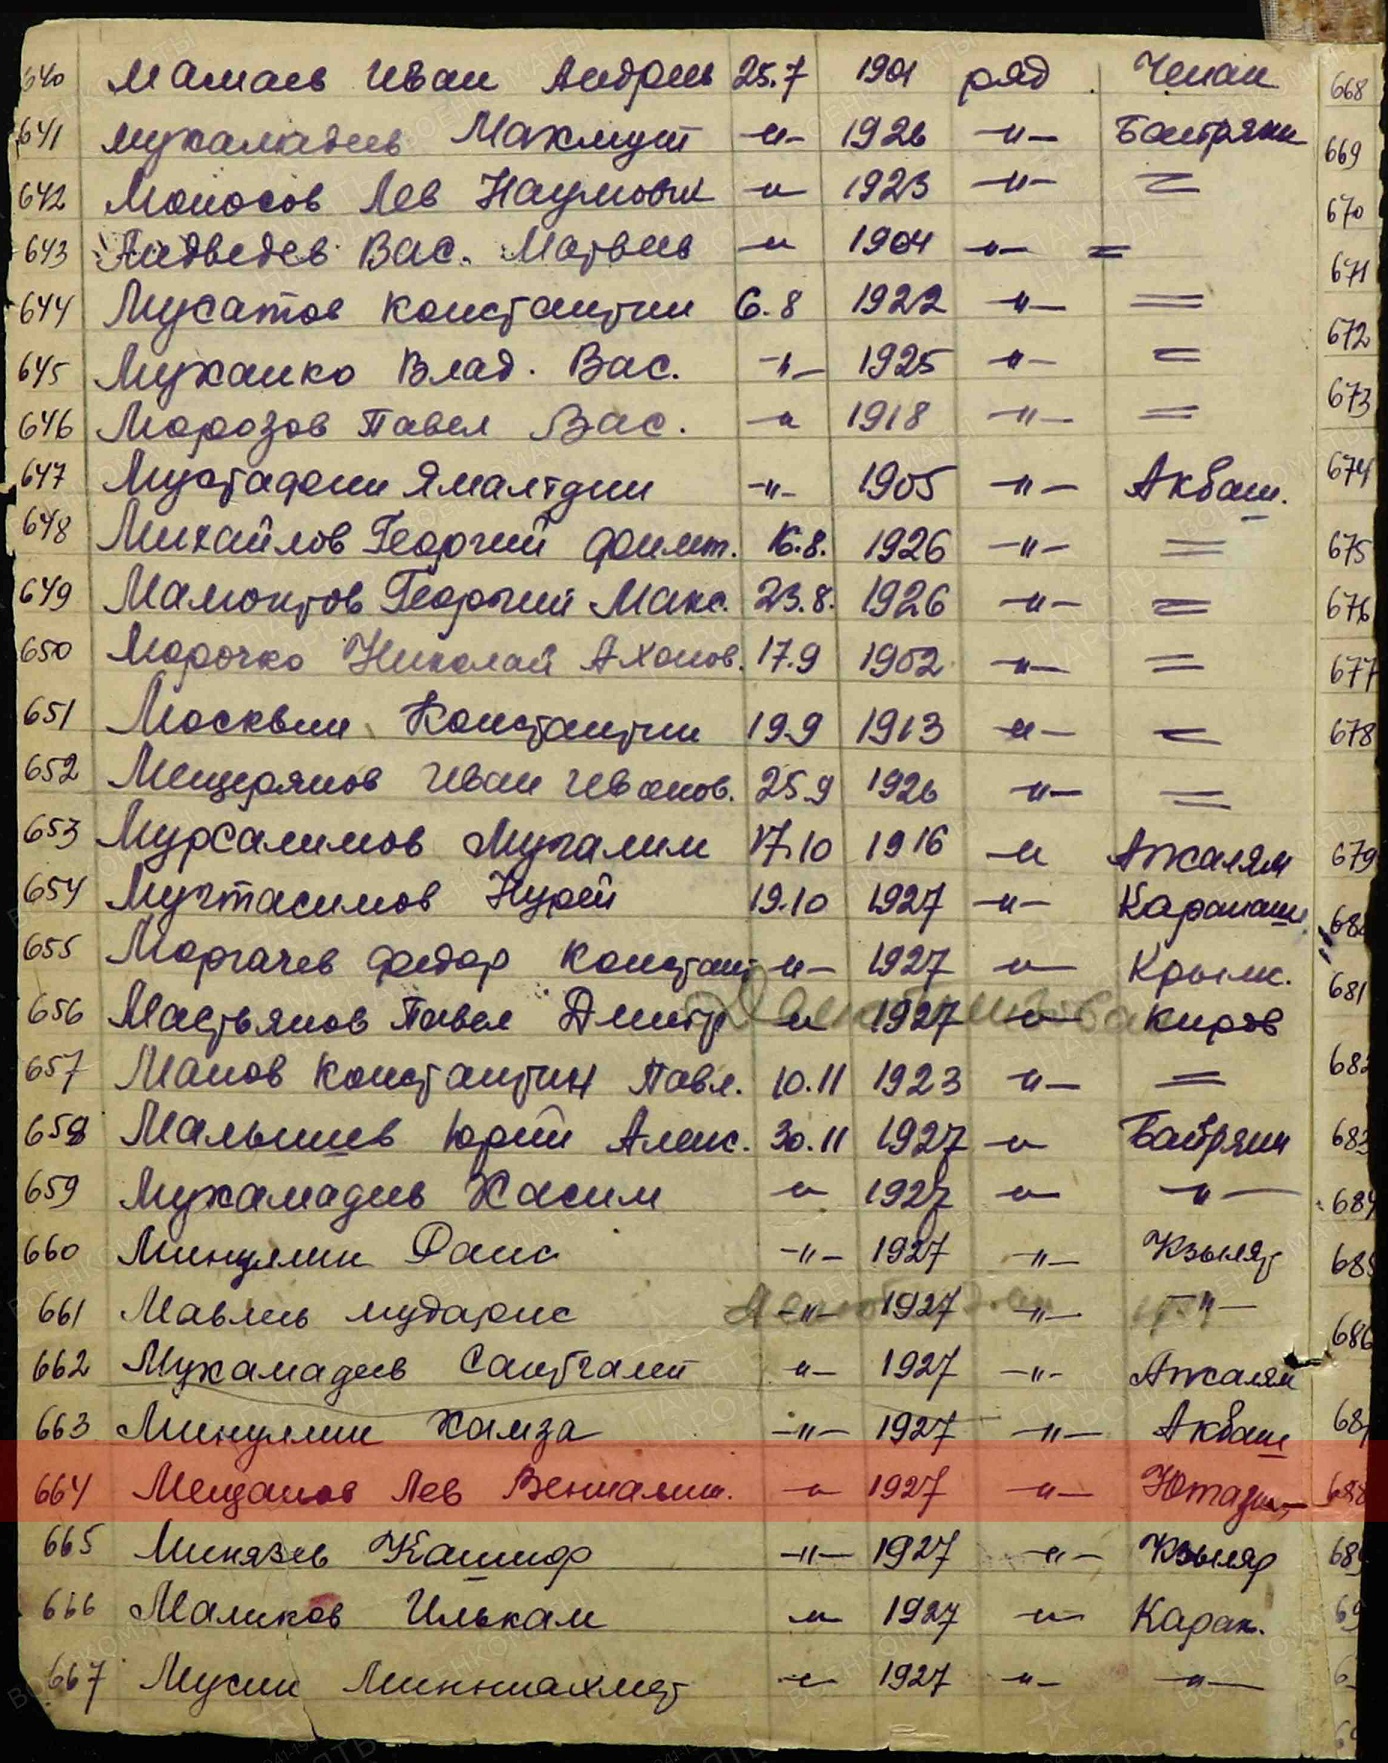 640 Мамаев Иван Андреев 25.7 1901 ряд. Чекан 668
641 Мухамадеев Махмут -"- 1926 -"- Байряки 669
642 Моносов Лев Наумович -"- 1923 -"- = 670
643 Медведев Вас. Матвеев -"- 1904 -"- = 671
644 Мусатов Константин 6.8 1922 -"- = 672
645 Муханко Влад. Вас. -"- 1925 -"- = 673
646 Морозов Павел Вас. -"- 1918 -"- =
647 Мустафин Ямалтдин -"- 1905 -"- Акбаш. 674
648 Михайлов Георгий Филит. 16.8. 1926 -"- = 675
649 Мамонтов Георгий Макс. 23.8. 1926 -"- = 676
650 Морочко Николай Афонов. 17.9 1902 -"- = 677
651 Москвин Константин 19.9 1913 -"- = 678
652 Мещеряков Иван Иванов. 25.9 1926 -"- =
653 Мурсалимов Мугалим 17.10 1916 -"- Апсалям 679
654 Мухтасимов Нурей 19.10 1927 -"- Каракаш.
655 Моргачев Федор Констант -"- 1927 -"- Крымс. 681
656 Мастьянов Павел Дмитр -"- 1927 -"- Киров
657 Манов Константин Павл. 10.11 1923 -"- =
658 Малышев Юрий Алекс. 30.11 1927 -"- Байряки 683
659 Мухамадеев Хасим -"- 1927 -"- -"- 684
660 Минуллин Фаис -"- 1927 -"- Кзыляр
661 Мавлеев Мударис -"- 1927 -"- -"- 686
662 Мухамадеев Саитгали -"- 1927 -"- Апсалям
663 Минуллин Хамза -"- 1927 -"- Акбаш
664 Мещанов Лев Вениамин. -"- 1927 -"- Ютаза 688
665 Миназеев Кашиф -"- 1927 -"- Кзыляр
666 Маликов Илькам -"- 1927 -"- Карак.
667 Мусин Минниахмет -"- 1927 -"- -"-